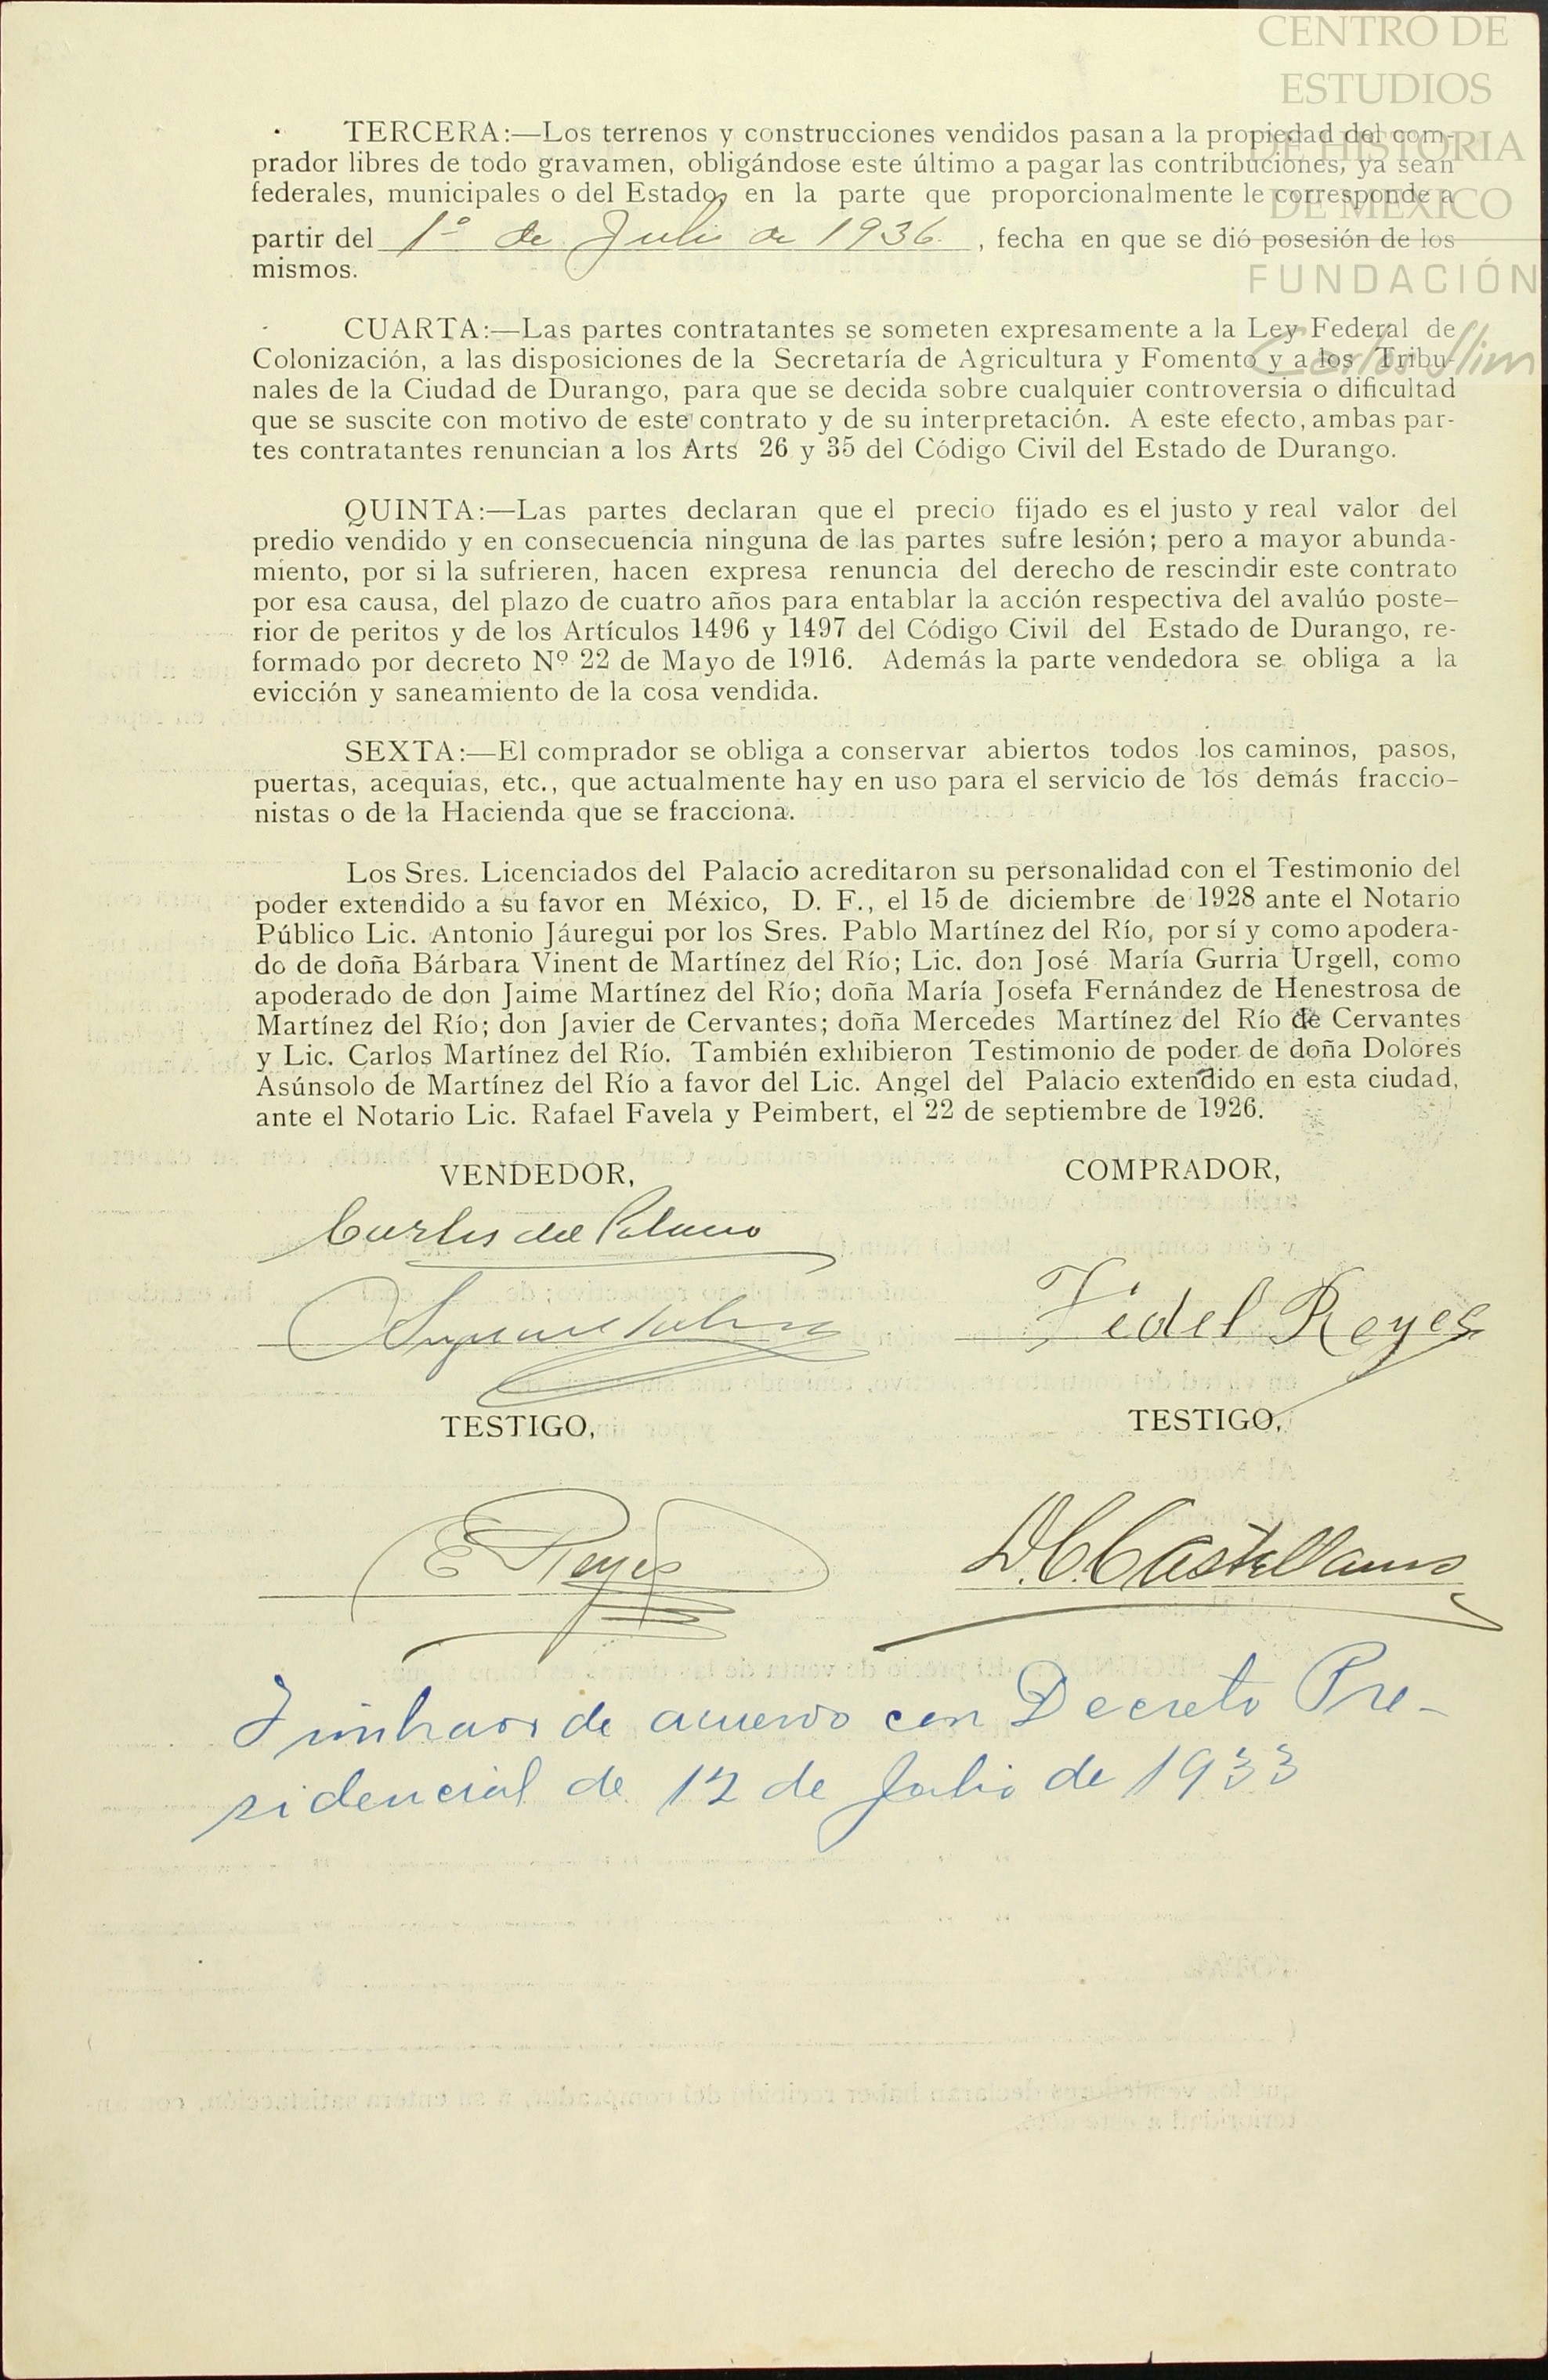 CENTRO DE
ESTUDIOS
DE HISTORIA
DE MÉXICO
FUNDACIÓN
Carlos Slim
TERCERA:—Los terrenos y construcciones vendidos pasan a la propiedad del com-
prador libres de todo gravamen, obligándose este último a pagar las contribuciones, ya sean
federales, municipales o del Estado, en la parte que proporcionalmente le corresponde a
partir del 1º de Julio de 1936. , fecha en que se dió posesión de los
mismos.
CUARTA:—Las partes contratantes se someten expresamente a la Ley Federal de
Colonización, a las disposiciones de la Secretaría de Agricultura y Fomento y a los Tribu-
nales de la Ciudad de Durango, para que se decida sobre cualquier controversia o dificultad
que se suscite con motivo de este contrato y de su interpretación. A este efecto, ambas par-
tes contratantes renuncian a los Arts 26 y 35 del Código Civil del Estado de Durango.
QUINTA:—Las partes declaran que el precio fijado es el justo y real valor del
predio vendido y en consecuencia ninguna de las partes sufre lesión; pero a mayor abunda-
miento, por si la sufrieren, hacen expresa renuncia del derecho de rescindir este contrato
por esa causa, del plazo de cuatro años para entablar la acción respectiva del avalúo poste-
rior de peritos y de los Artículos 1496 y 1497 del Código Civil del Estado de Durango, re-
formado por decreto Nº 22 de Mayo de 1916. Además la parte vendedora se obliga a la
evicción y saneamiento de la cosa vendida.
SEXTA:—El comprador se obliga a conservar abiertos todos los caminos, pasos,
puertas, acequias, etc., que actualmente hay en uso para el servicio de los demás fraccio-
nistas o de la Hacienda que se fracciona.
Los Sres. Licenciados del Palacio acreditaron su personalidad con el Testimonio del
poder extendido a su favor en México, D. F., el 15 de diciembre de 1928 ante el Notario
Público Lic. Antonio Jáuregui por los Sres. Pablo Martínez del Río, por sí y como apodera-
do de doña Bárbara Vinent de Martínez del Río; Lic. don José María Gurria Urgell, como
apoderado de don Jaime Martínez del Río; doña María Josefa Fernández de Henestrosa de
Martínez del Río; don Javier de Cervantes; doña Mercedes Martínez del Río de Cervantes
y Lic. Carlos Martínez del Río. También exhibieron Testimonio de poder de doña Dolores
Asúnsolo de Martínez del Río a favor del Lic. Angel del Palacio extendido en esta ciudad,
ante el Notario Lic. Rafael Favela y Peimbert, el 22 de septiembre de 1926.
VENDEDOR,
COMPRADOR,
Carlos del Palacio
Fidel Reyes
TESTIGO,
TESTIGO,
E Reyes
D. C. Castellanos
de acuerdo con Decreto Pre-
sidencial de 12 de Julio de 1933